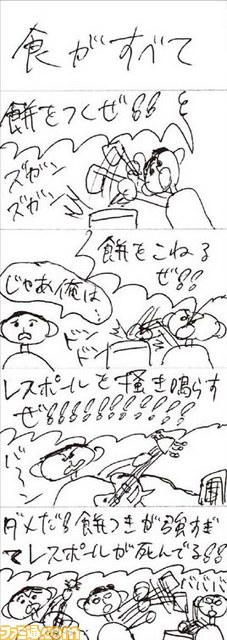 食がすべて
餅をつくぜ!!
ズガン
ズガン
餅をこねる
ぜ!!
じゃあ俺は…
ドン
ドン
レスポールを掻き鳴らす
ぜ!!!!!!!!!!!!
バーン
ダメだ!!餅つきが強すぎ
てレスポールが死んでる!!
バババ
ファミ通.com